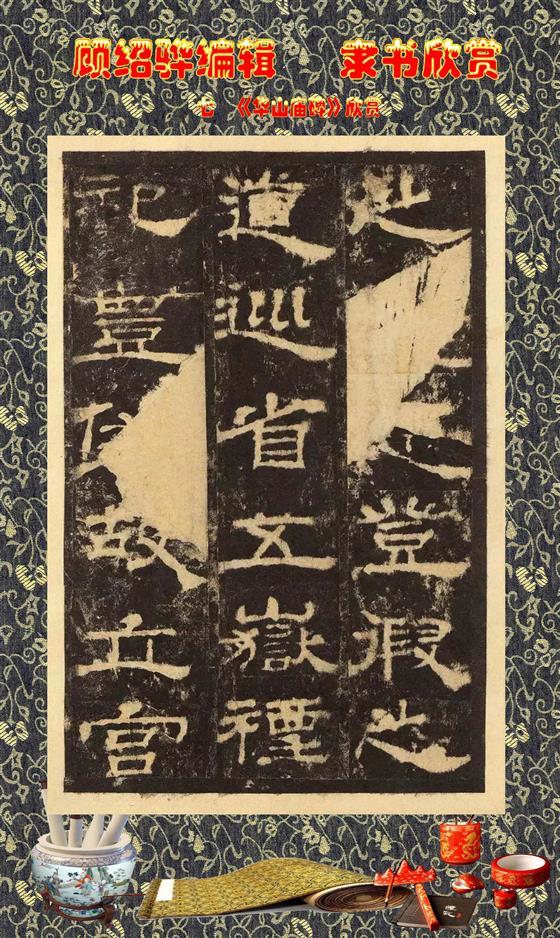 顾绍骅编辑 隶书欣赏
《华山庙碑》欣赏
之登假之
道巡省五嶽禋
祀豐備故立宮